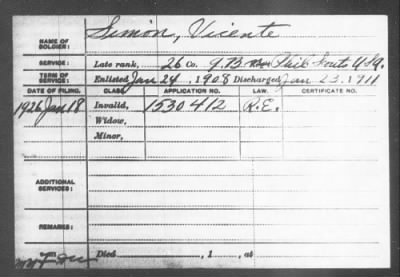 Simon, Vicente
NAME OF SOLDIER:
SERVICE: Late rank, 26 Co. Phil. Scouts U.S.A.
TERM OF SERVICE: Enlisted Jan 24, 1908 Discharged Jan 23, 1911
DATE OF FILING. CLASS. APPLICATION NO. LAW. CERTIFICATE NO.
1926 Jan 18 Invalid, 1530412 R.E.
Widow,
Minor,
ADDITIONAL SERVICES:
REMARKS:
Died , 1 , at